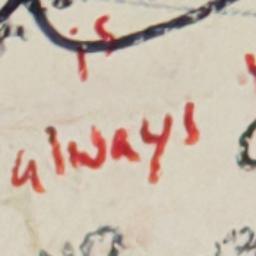 is
always